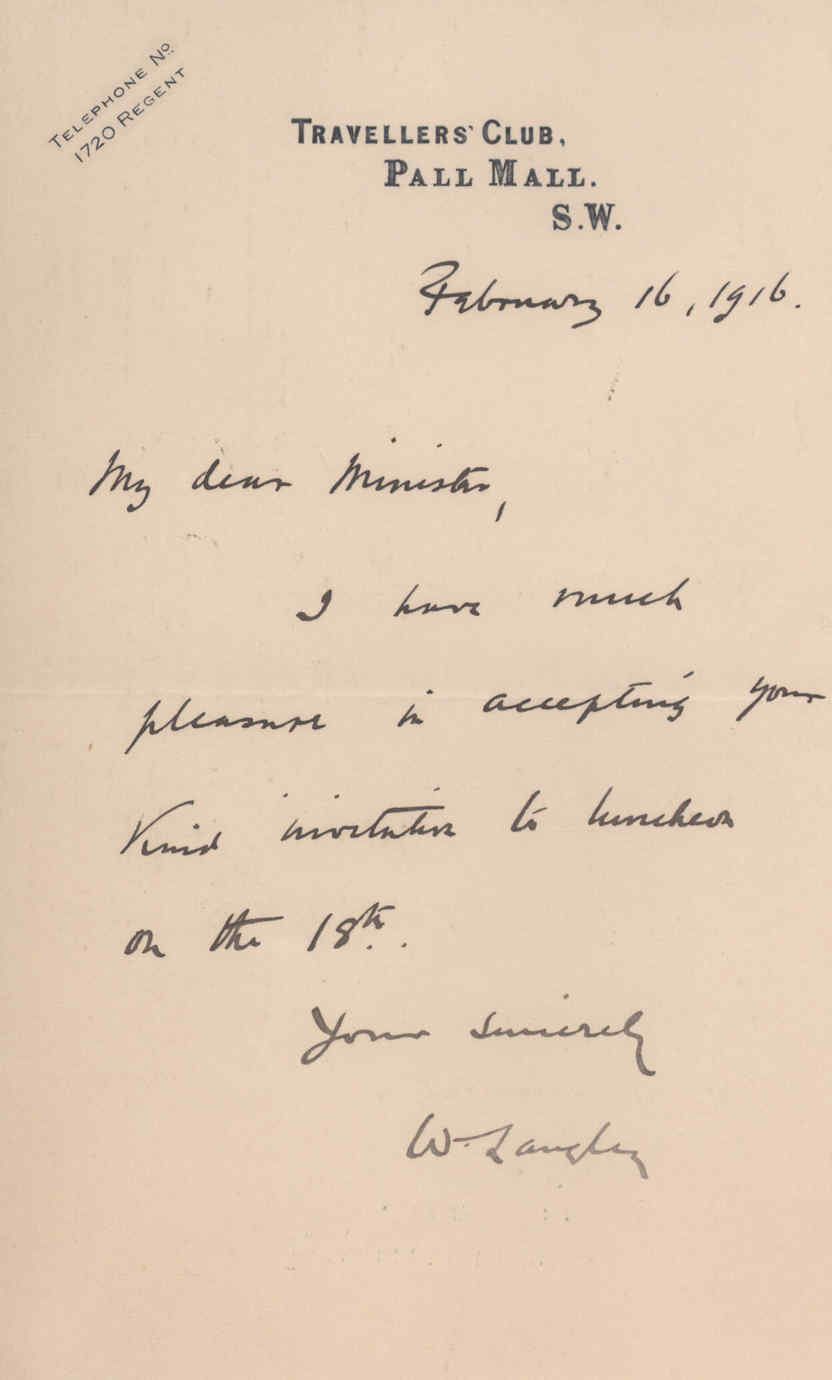 TELEPHONE No.
1720 REGENT
TRAVELLERS' CLUB,
PALL MALL.
S.W.
February 16, 1916.
My dear Minister,
I have much
pleasure in accepting your
kind invitation to luncheon
on the 18th.
Yours sincerely
W. Langley